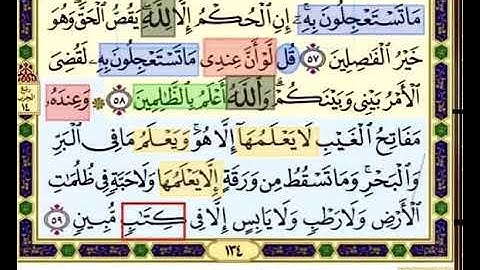 مَا تَسْتَعْجِلُونَ بِهِۦٓ ۚ إِنِ ٱلْحُكْمُ إِلَّا لِلَّهِ ۖ يَقُصُّ ٱلْحَقَّ ۖ وَهُوَ
خَيْرُ ٱلْفَٰصِلِينَ ٥٧ قُل لَّوْ أَنَّ عِندِى مَا تَسْتَعْجِلُونَ بِهِۦ لَقُضِىَ
ٱلْأَمْرُ بَيْنِى وَبَيْنَكُمْ ۗ وَٱللَّهُ أَعْلَمُ بِٱلظَّٰلِمِينَ ٥٨ ۞ وَعِندَهُۥ
مَفَاتِحُ ٱلْغَيْبِ لَا يَعْلَمُهَآ إِلَّا هُوَ ۚ وَيَعْلَمُ مَا فِى ٱلْبَرِّ
وَٱلْبَحْرِ ۚ وَمَا تَسْقُطُ مِن وَرَقَةٍ إِلَّا يَعْلَمُهَا وَلَا حَبَّةٍ فِى ظُلُمَٰتِ
ٱلْأَرْضِ وَلَا رَطْبٍ وَلَا يَابِسٍ إِلَّا فِى كِتَٰبٍ مُّبِينٍ ٥٩
ربع
الحزب
١٤
١٣٤